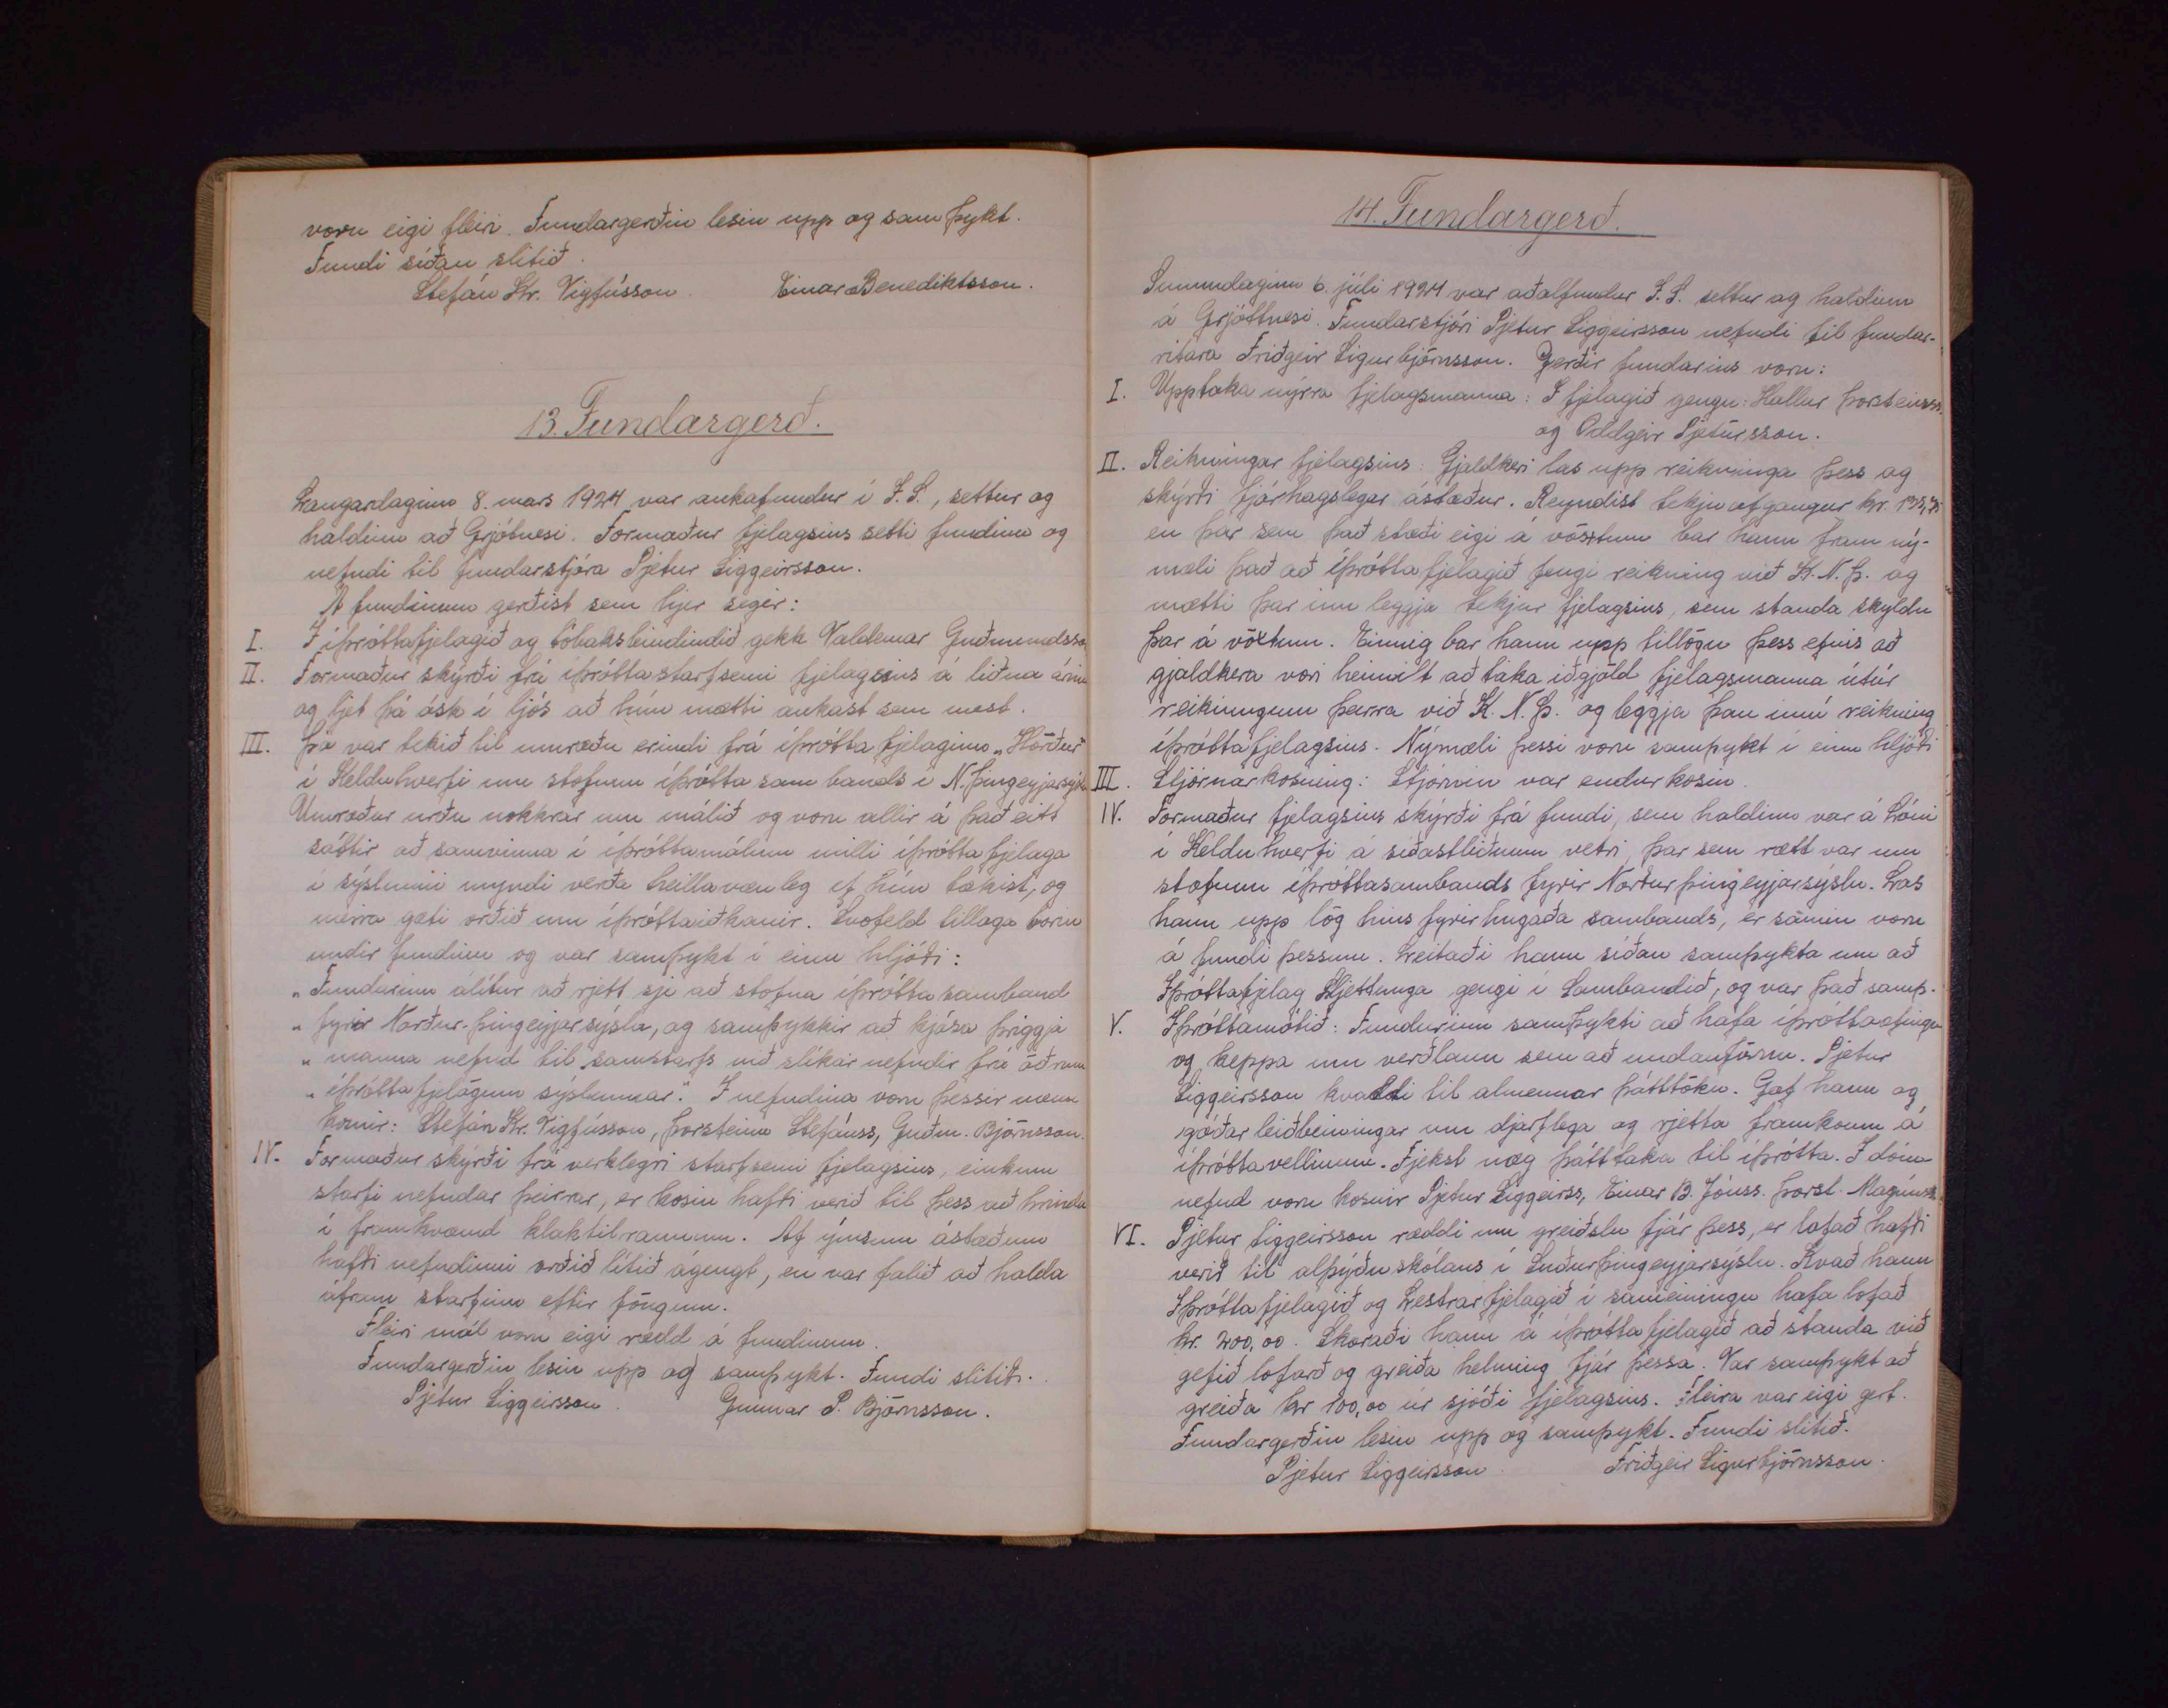 voru eigi fleiri. Fundargerðin lesin upp og samþykt.
Fundi síðan slitið.
Stefán Kr. Vigfússon. Einar Benediktsson.
13. Fundargerð.
Laugardaginn 8. mars 1924 var aukafundur í Í.S., settur og
haldinn að Grjótnesi. Formaður fjelagsins setti fundinn og
nefndi til fundarstjóra Pjetur Siggeirsson.
Á fundinum gerðist sem hjer segir:
I. Í íþróttafjelagið og tóbaksbindindið gekk Valdemar Guðmundsson
II. Formaður skýrði frá íþróttastarfsemi fjelagsins á liðna árinu
og ljet þá ósk í ljós að hún mætti aukast sem mest.
III. Þá var tekið til umræðu erindi frá íþróttafjelaginu „Hörður"
í Kelduhverfi um stofnun íþróttasambands í N.Þingeyjarsýslu
Umræður urðu nokkrar um málið og voru allir á það eitt
sáttir að samvinna í íþróttamálum milli íþróttafjelaga
í sýslunni myndi verða heillavænleg ef hún tækist, og
meira gæti orðið um íþróttaiðkanir. Svofeld tillaga borin
undir fundinn og var samþykt í einu hljóði:
„Fundurinn álítur að rjett sje að stofna íþróttasamband
„ fyrir Norður-Þingeyjarsýslu, og samþykkir að kjósa þriggja
„ manna nefnd til samstarfs við slíkar nefndir frá öðrum
„ íþróttafjelögum sýslunnar." Í nefndina voru þessir menn
kosnir: Stefán Kr. Vigfússon, Þorsteinn Stefánss, Guðm. Björnsson.
IV. Formaður skýrði frá verklegri starfsemi fjelagsins, einkum
starfi nefndar þeirrar, er kosin hafði verið til þess að hrinda
í framkvæmd klaktilraunum. Af ýmsum ástæðum
hafði nefndinni orðið lítið ágengt, en var falið að halda
áfram starfinu eftir föngum.
Fleiri mál voru eigi rædd á fundinum.
Fundargerðin lesin upp og samþykt. Fundi slitið.
Pjetur Siggeirsson. Gunnar P. Björnsson.
14. Fundargerð.
Sunnudaginn 6. júlí 1924 var aðalfundur Í.S. settur og haldinn
á Grjótnesi. Fundarstjóri Pjetur Siggeirsson nefndi til fundar-
ritara Friðgeir Sigurbjörnsson. Gerðir fundarins voru:
I. Upptaka nýrra fjelagsmanna: Í fjelagið gengu: Hallur Þorsteinss.
og Oddgeir Pjetursson.
II. Reikningar fjelagsins: Gjaldkeri las upp reikninga þess og
skýrði fjárhagslegar ástæður. Reyndist tekjuafgangur kr.
en þar sem það stæði eigi á vöxtum bar hann fram ný-
mæli það að íþróttafjelagið fengi reikning við K.N.Þ. og
mætti þar inn leggja tekjur fjelagsins, sem standa skyldu
þar á vöxtum. Einnig bar hann upp tillögu þess efnis að
gjaldkera væri heimilt að taka iðgjöld fjelagsmanna útúr
reikningum þeirra við K.N.Þ. og leggja þau inní reikning
íþróttafjelagsins. Nýmæli þessi voru samþykt í einu hljóði
III. Stjórnarkosning: Stjórnin var endurkosin.
IV. Formaður fjelagsins skýrði frá fundi, sem haldinn var á Lóni
í Kelduhverfi á síðastliðnum vetri, þar sem rætt var um
stofnun íþróttasambands fyrir Norðurþingeyjarsýslu. Las
hann upp lög hins fyrirhugaða sambands, er samin voru
á fundi þessum. Leitaði hann síðan samþykta um að
Íþróttafjelag Sljettunga gengi í Sambandið, og var það samþ.
V. Íþróttamótið: Fundurinn samþykti að hafa íþróttaæfingu
og keppa um verðlaun sem að undanförnu. Pjetur
Siggeirsson kvaddi til almennar þátttöku. Gaf hann og
góðar leiðbeiningar um djarflega og rjetta framkomu á
íþróttavellinum. Fjekst næg þátttaka til íþrótta. Í dóm-
nefnd voru kosnir Pjetur Siggeirss, Einar B. Jónss. Þorst. Magnúss.
VI. Pjetur Siggeirsson ræddi um greiðslu fjár þess, er lofað hafði
verið til alþýðuskólans í Suðurþingeyjarsýslu. Kvað hann
Íþróttafjelagið og Lestrarfjelagið í sameiningu hafa lofað
kr. 200,00. Skoraði hann á íþróttafjelagið að standa við
gefið loforð og greiða helming fjár þessa. Var samþykt að
greiða kr 100,00 úr sjóði fjelagsins. Fleira var eigi gert.
Fundargerðin lesin upp og samþykt. Fundi slitið.
Pjetur Siggeirsson. Friðgeir Sigurbjörnsson.